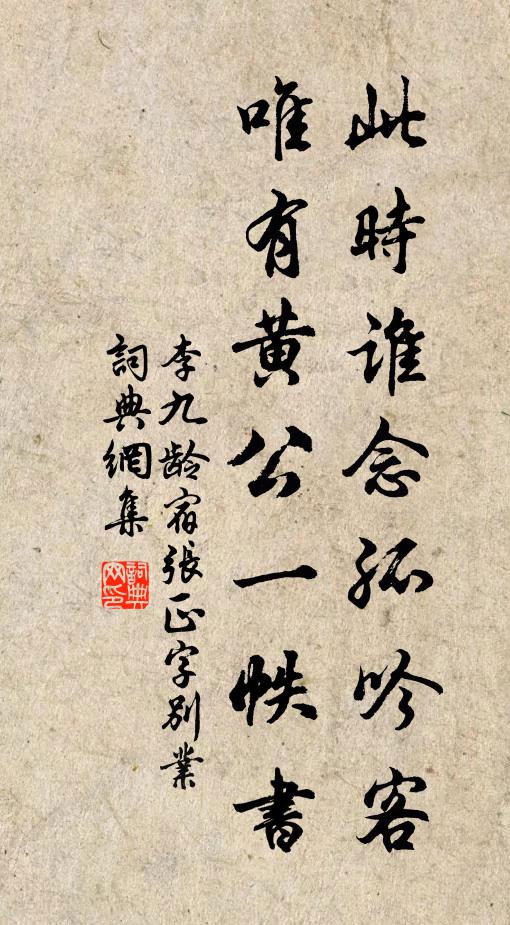 此時誰念孤吟客
唯有黃公一帙書
李九齡宿張正字別業
詞典網集
詞典
网印